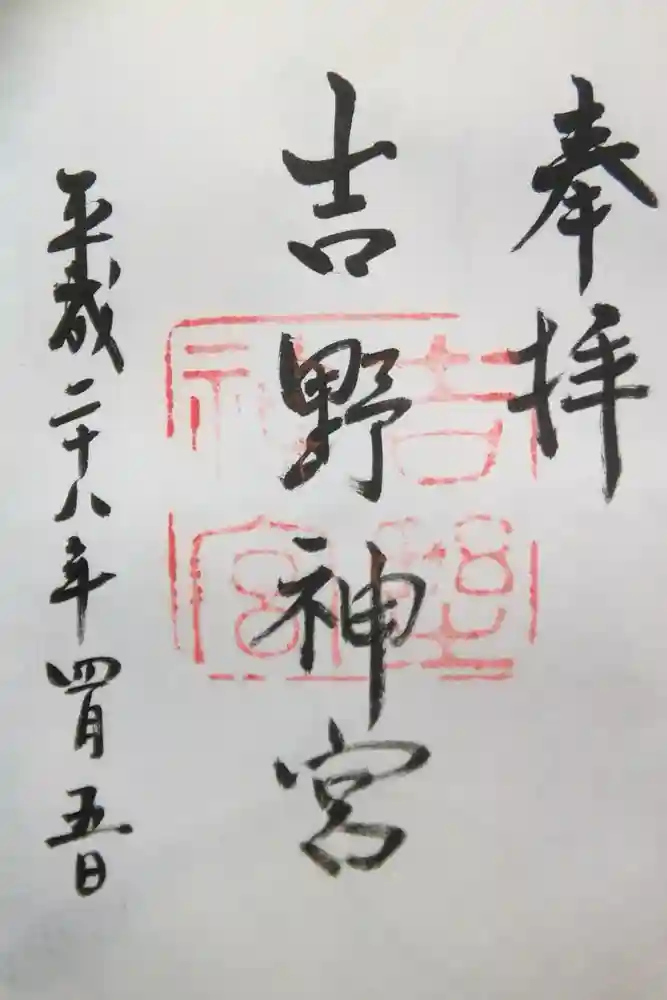 奉拝
吉野神宮
平成二十八年四月五日
吉野
神宮